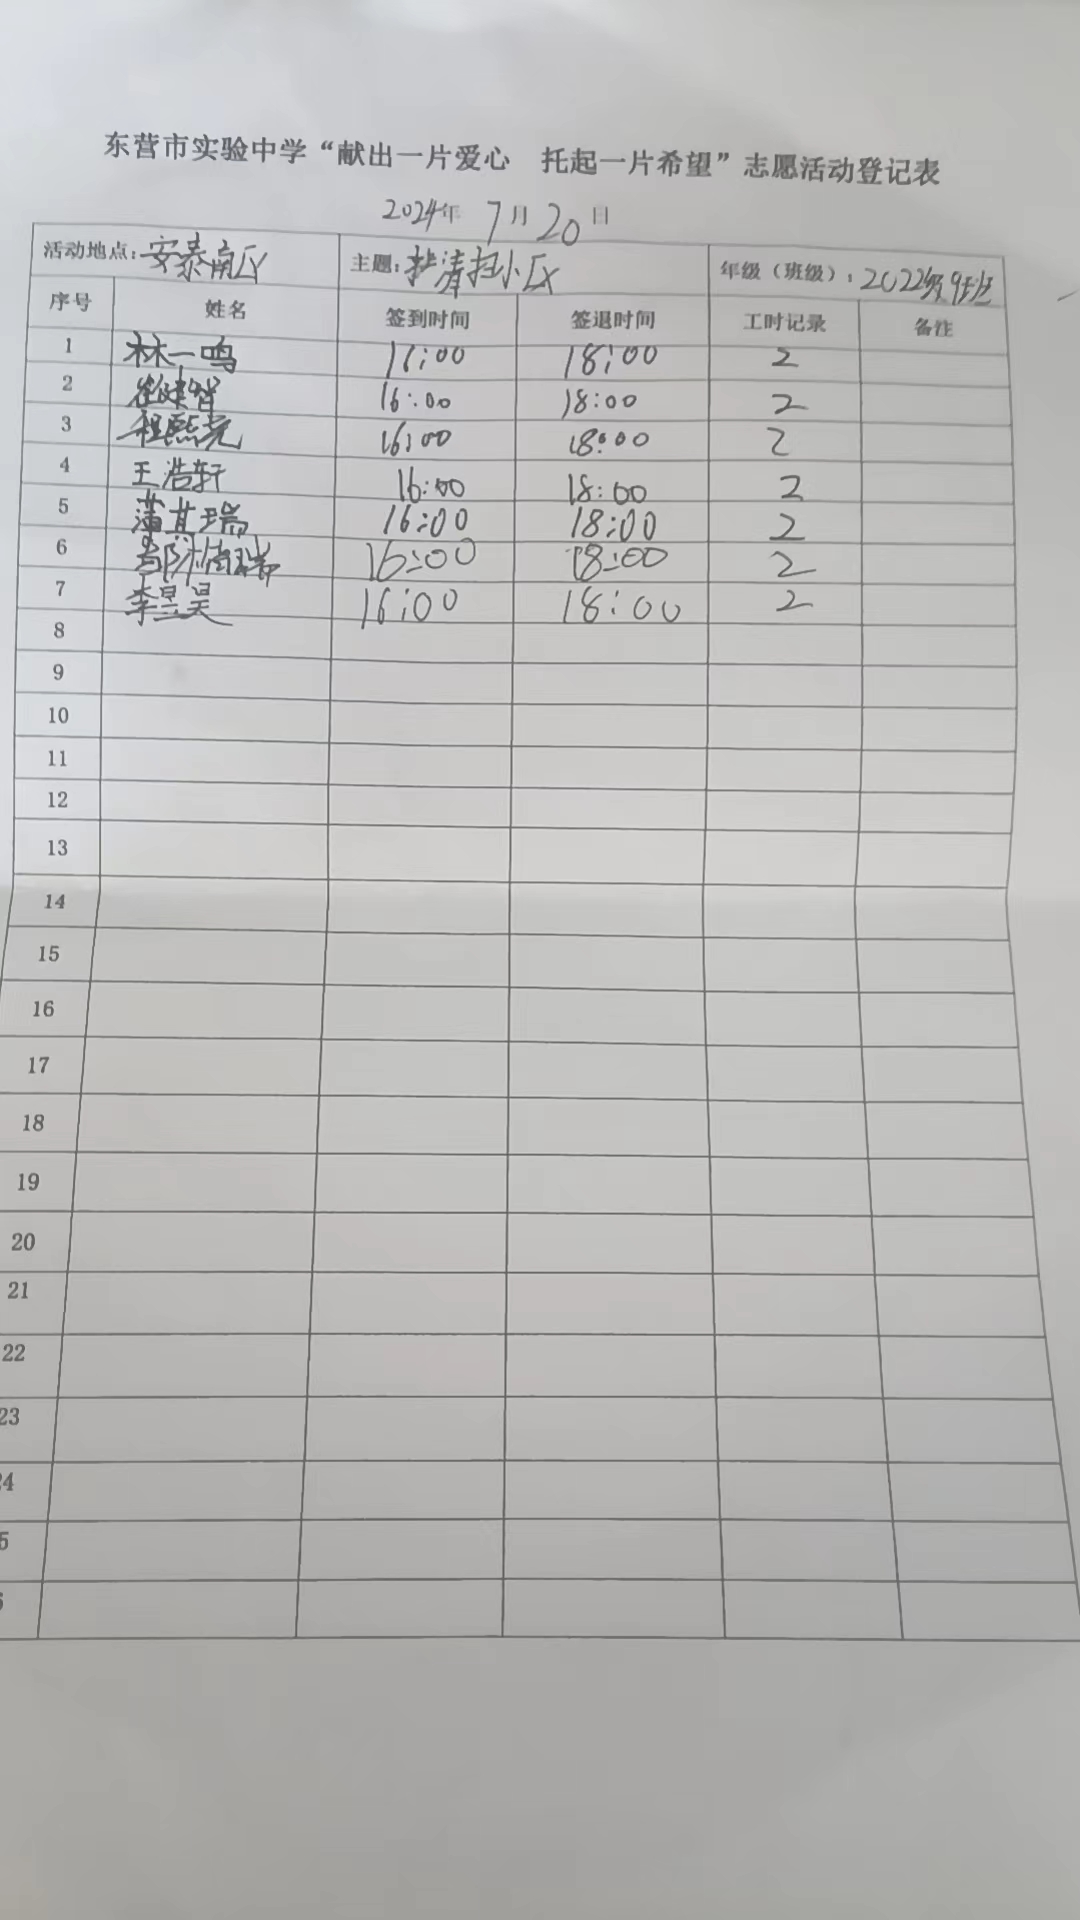 东营市实验中学“献出一片爱心 托起一片希望”志愿活动登记表
2024年 7月20日
活动地点:安泰南区 主题:清扫小区 年级（班级）:2022级9班
序号 姓名 签到时间 签退时间 工时记录 备注
1 林一鸣 16:00 18:00 2
2 崔建智 16:00 18:00 2
3 程熙尧 16:00 18:00 2
4 王浩轩 16:00 18:00 2
5 蒲其瑞 16:00 18:00 2
6 16:00 18:00 2
7 李昱昊 16:00 18:00 2
8
9
10
11
12
13
14
15
16
17
18
19
20
21
22
23
4
5